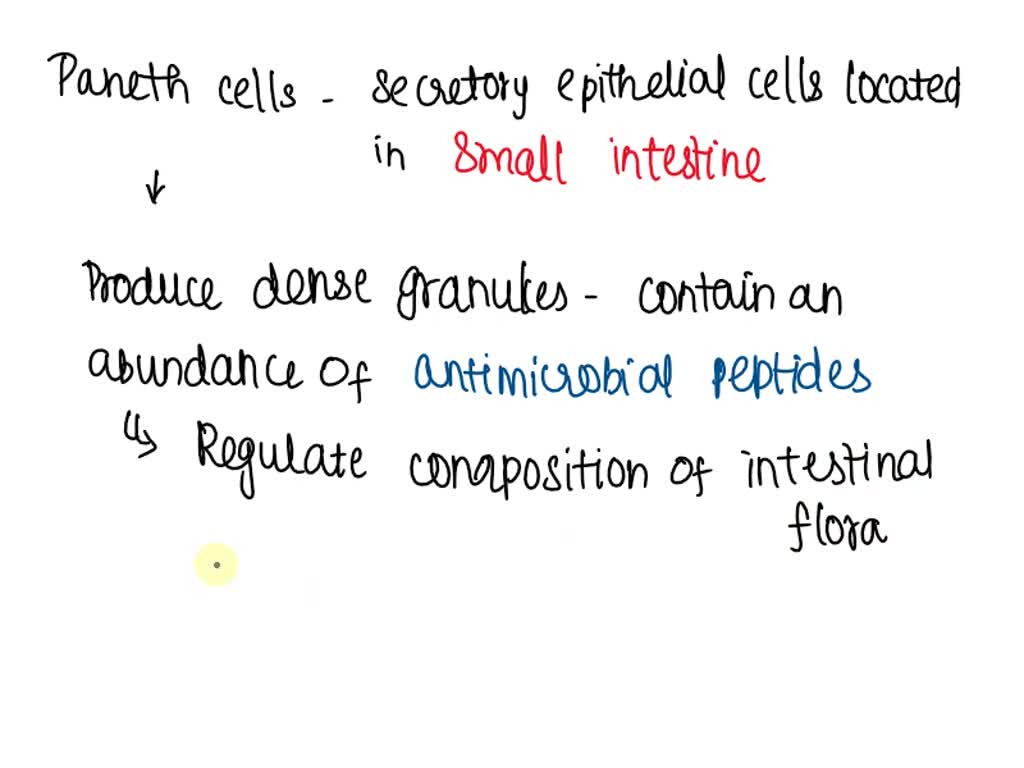 Paneth cells - secretory epithelial cells located
in small intestine
↓
Produce dense granules - contain an
abundance of antimicrobial peptides
↳ Regulate composition of intestinal
flora